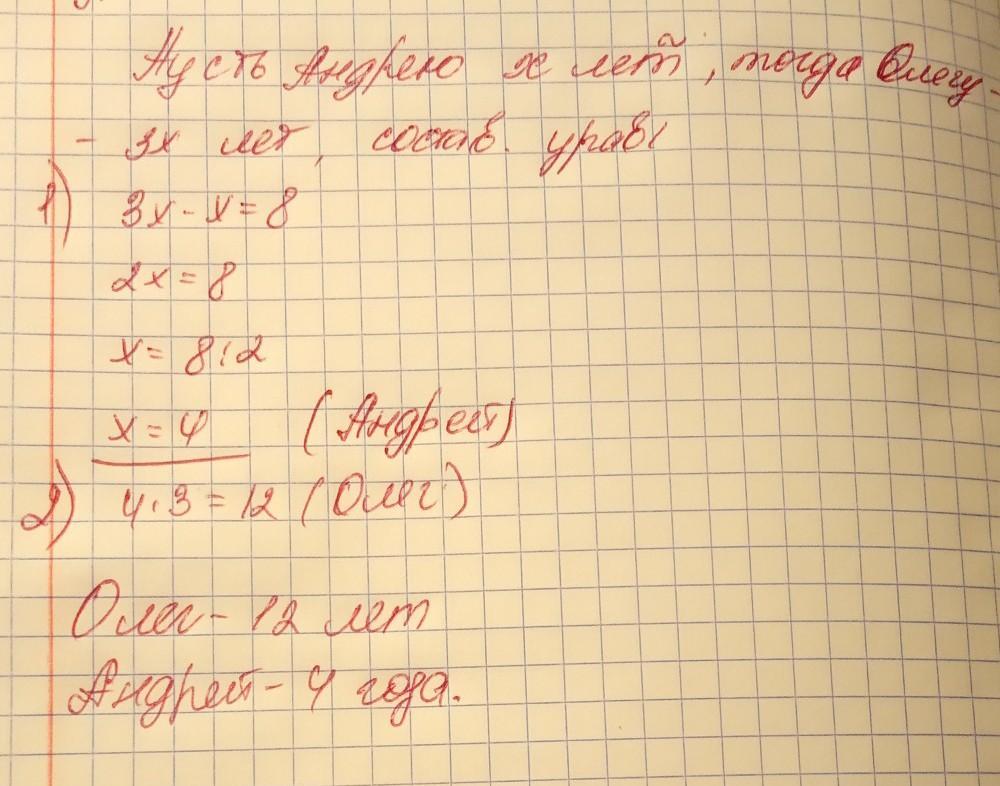 Пусть Андрею x лет, тогда Олегу -
- 3x лет, состав. урав
1) 3x - x = 8
2x = 8
x = 8:2
x = 4 (Андрей)
2) 4·3 = 12 (Олег)
Олег - 12 лет
Андрей - 4 года.